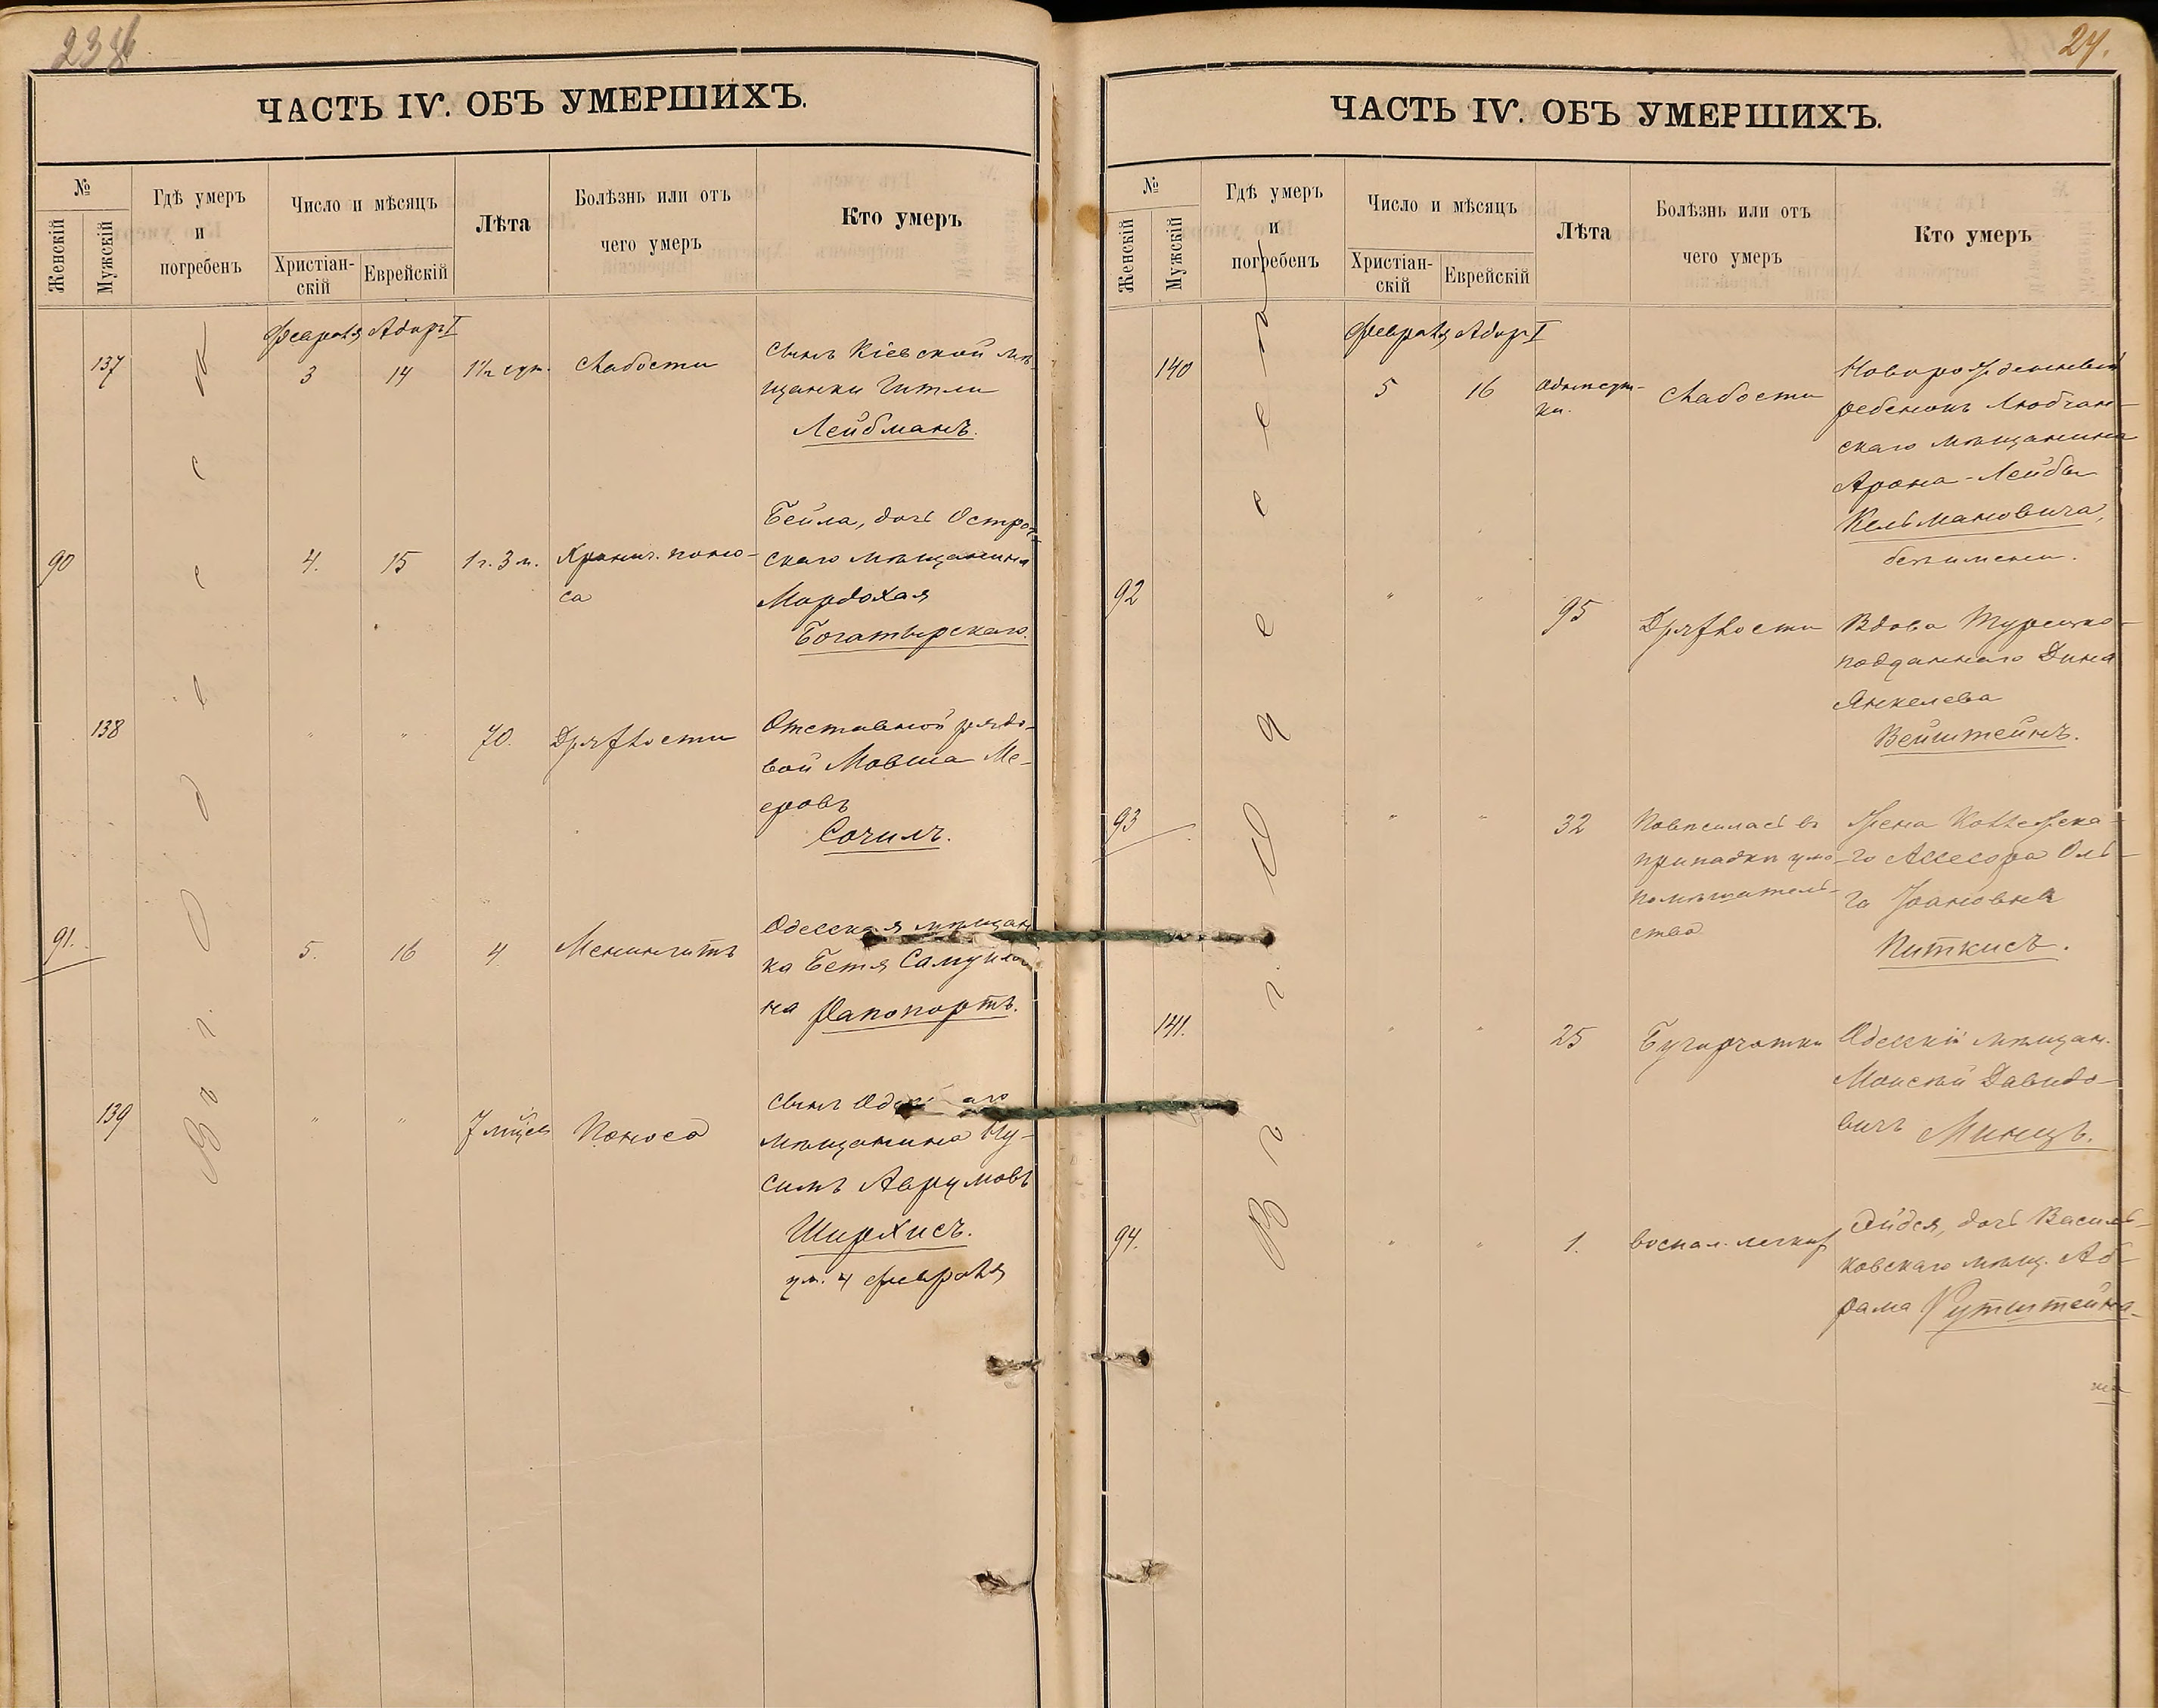 ЧАСТЬ IV. ОБЪ УМЕРШИХЪ.
№
Женскій
Мужскій
Гдѣ умеръ
и
погребенъ
Число и мѣсяцъ
Христіан-
скій
Еврейскій
Лѣта
Болѣзнь или отъ
чего умеръ
Кто умеръ
Въ г. Одессѣ
Февраля Адаръ I
137
3
14
1½ сут.
Слабости
Сынъ Кіевской мѣ-
щанки Гитли
Лейбманъ.
90
4.
15
1 г. 3 м.
Хронич. поно-
са
Бейла, дочь Острог-
скаго мѣщанина
Мордохая
Богатырскаго.
138
"
"
70.
Дряхлости
Отставной рядо-
вой Мовша Ме-
еровъ
Сочилъ.
91.
5.
16
4
Менингитъ
Одесская мѣщан
ка Бетя Самуилов
на Рапопортъ.
139
"
"
7 мѣсц
Поноса
Сынъ
мѣщанина Ну-
симъ Аврумовъ
Ширхисъ.
ум. 4 февраля
24.
ЧАСТЬ IV. ОБЪ УМЕРШИХЪ.
№
Женскій
Мужскій
Гдѣ умеръ
и
погребенъ
Число и мѣсяцъ
Христіан-
скій
Еврейскій
Лѣта
Болѣзнь или отъ
чего умеръ
Кто умеръ
Въ г. Одессѣ
Февраля Адаръ I
140
5
16
Однѣ сут-
ки.
Слабости
Новорожденный
ребенокъ Любчан-
скаго мѣщанина
Арона-Лейбы
Кельмановича,
безъ имени.
92
"
"
95
Дряхлости
Вдова Турецко-
подданнаго Дина
Янкелева
Вейнтейнъ.
93
"
"
32
Повѣсилась въ
припадкѣ умо-
помѣшатель-
ства
Жена Коллежска-
го Ассесора Оль-
га Іоановна
Питкисъ.
141.
"
"
25
Бугорчатки
Одесскій мѣщан.
Моисей Давидо-
вичъ Минцъ.
94.
"
"
1.
Воспал. легкихъ
Эйдля, дочь Василь-
ковскаго мѣщ. Аб-
рама Рутштейна